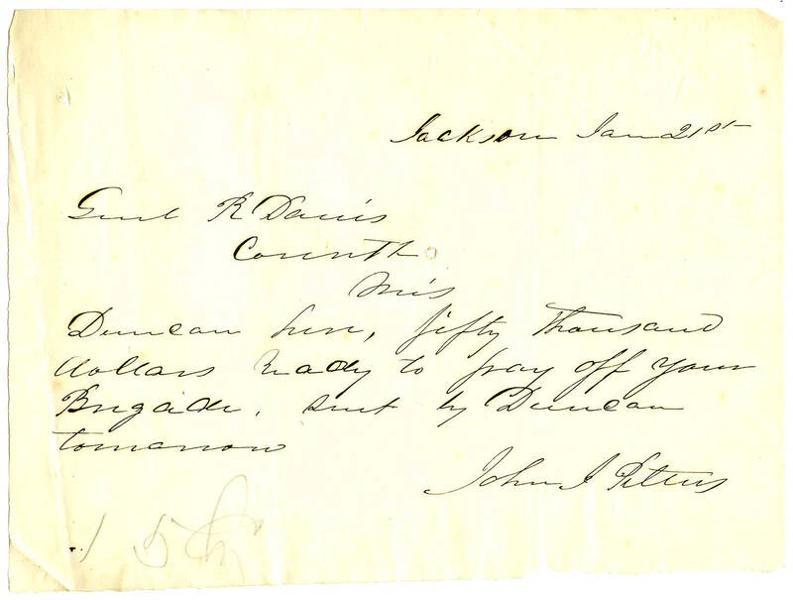 Jackson Jan 21st
Genl R Davis
Corinth
Mis
Duncan here, fifty thousand
dollars ready to pay off your
Brigade, sent by Duncan
tomorrow
John J Pettus